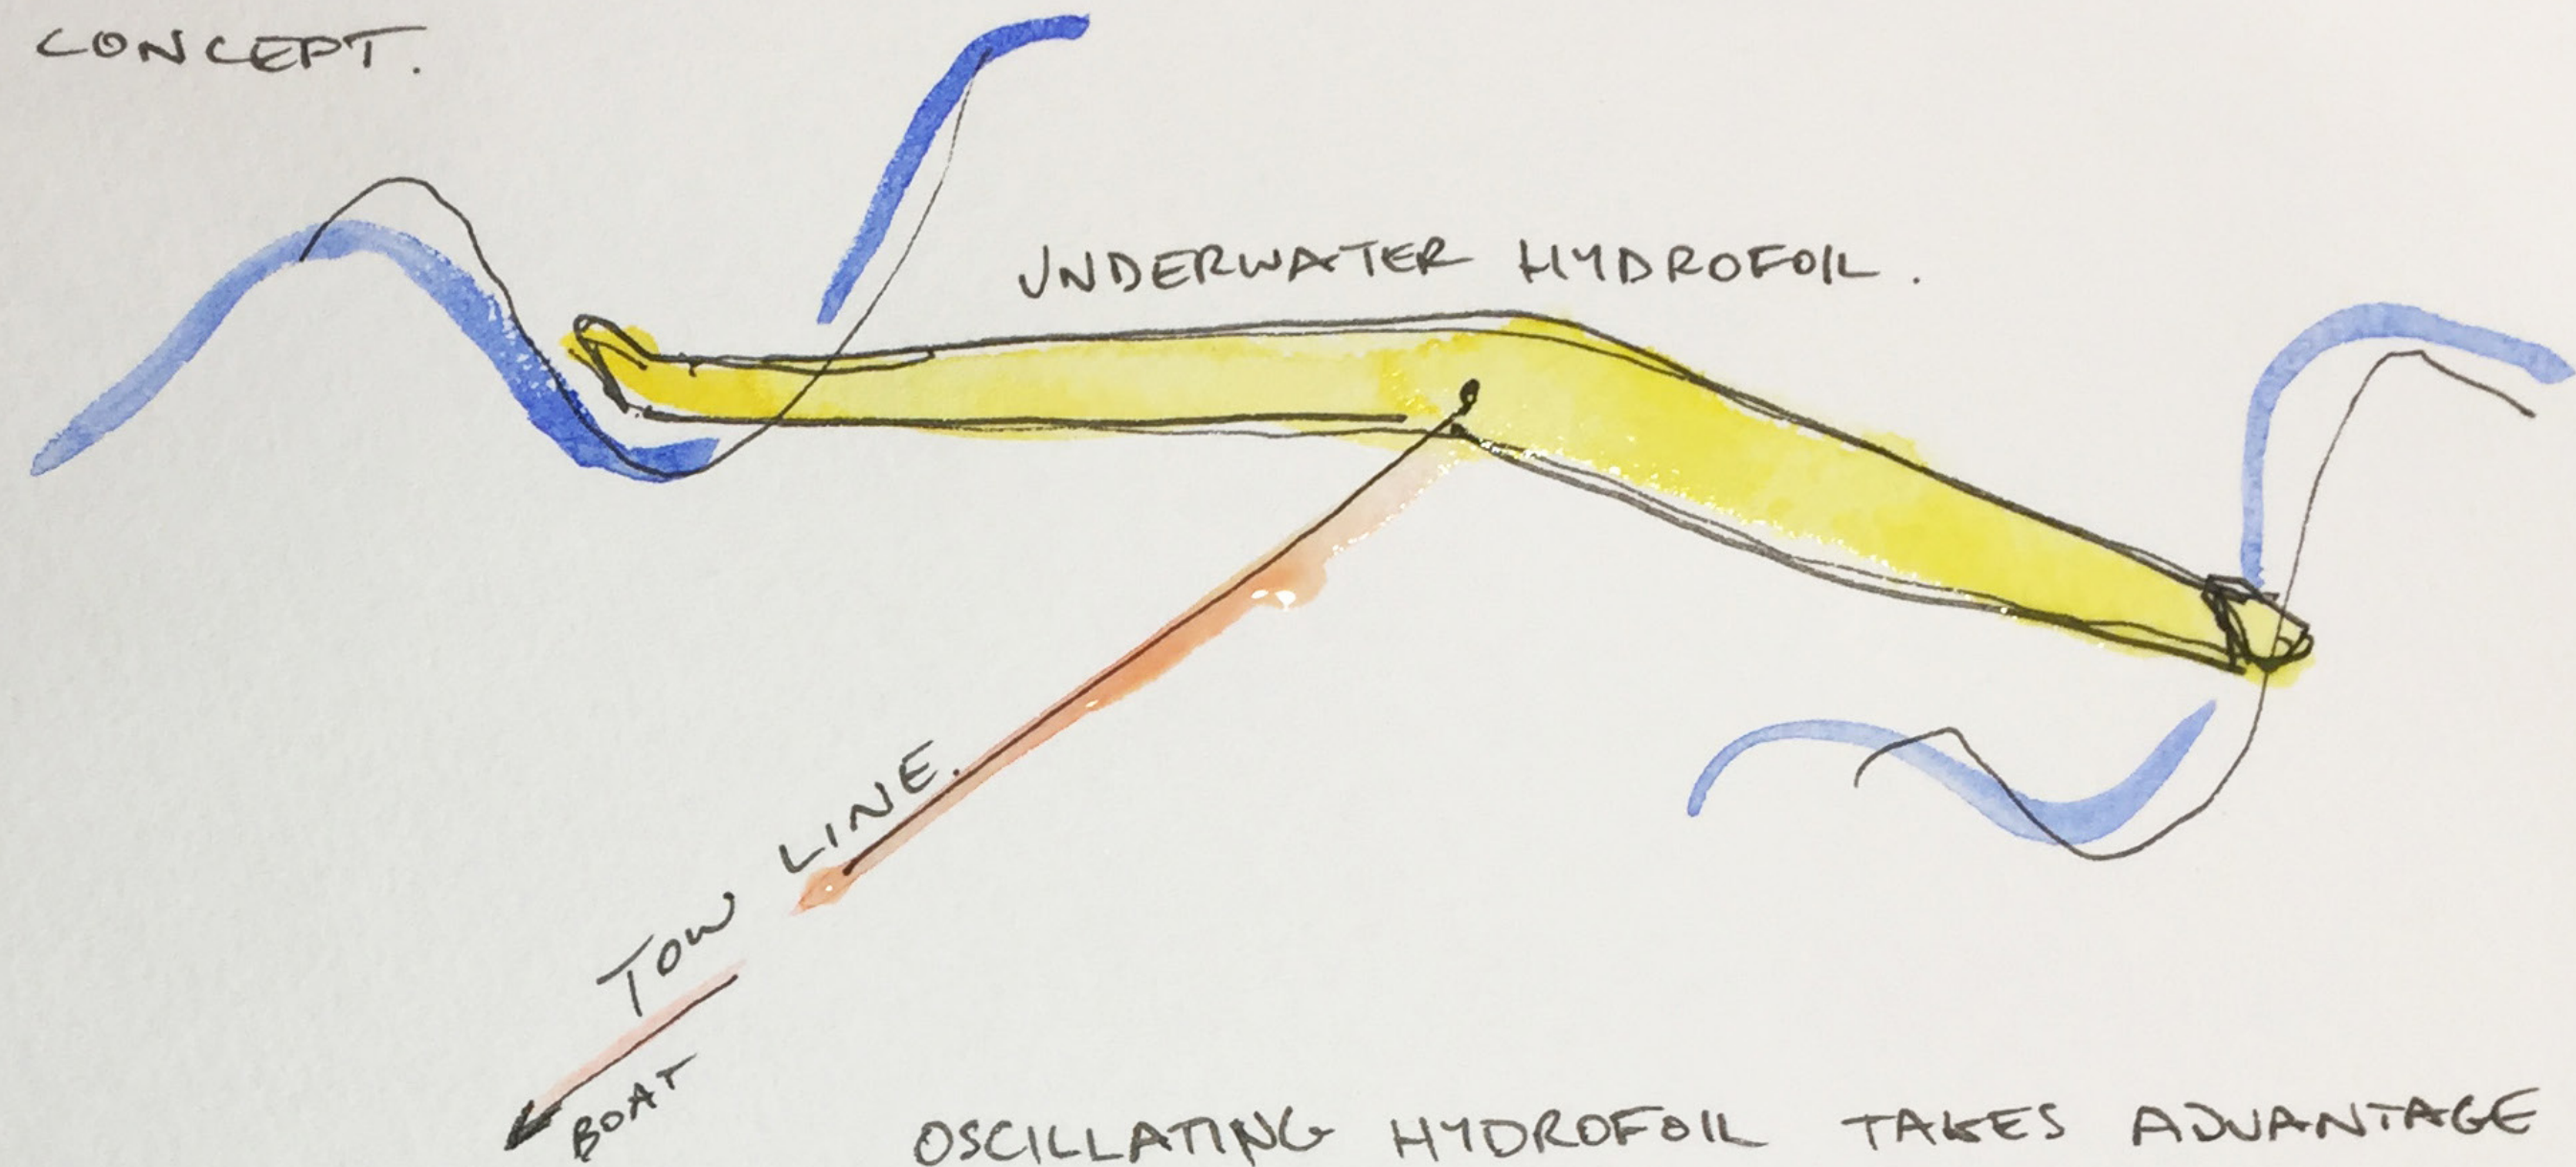 CONCEPT.
UNDERWATER HYDROFOIL.
TOW LINE.
BOAT
OSCILLATING HYDROFOIL TAKES ADVANTAGE